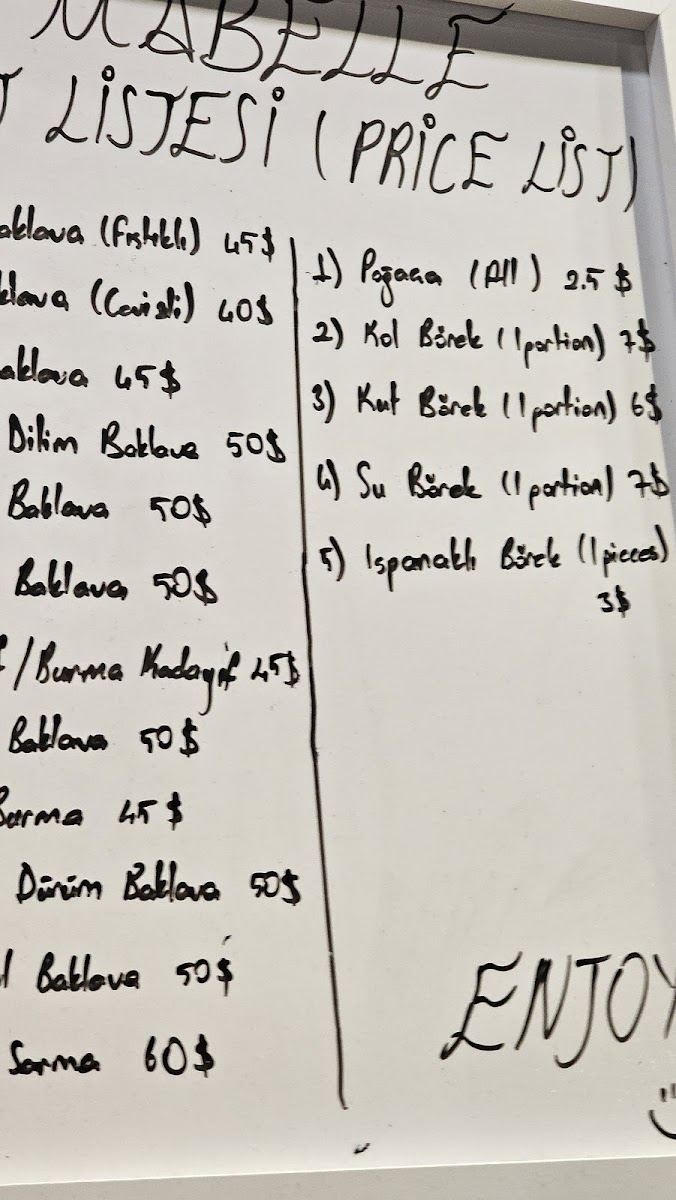 MABELLE
LİSTESİ (PRİCE LİST)
aklava (fıstıklı) 45$
klava (Cevizli) 40$
aklava 45$
Dilim Baklava 50$
Baklava 50$
Baklava 50$
/Burma Kadayıf 45$
Baklava 50$
Burma 45$
Dürüm Baklava 50$
l Baklava 50$
Sarma 60$
1) Poğaça (All) 2.5 $
2) Kol Börek (1 portion) 7$
3) Kut Börek (1 portion) 6$
4) Su Börek (1 portion) 7$
5) Ispanaklı Börek (1 pieces)
3$
ENJOY